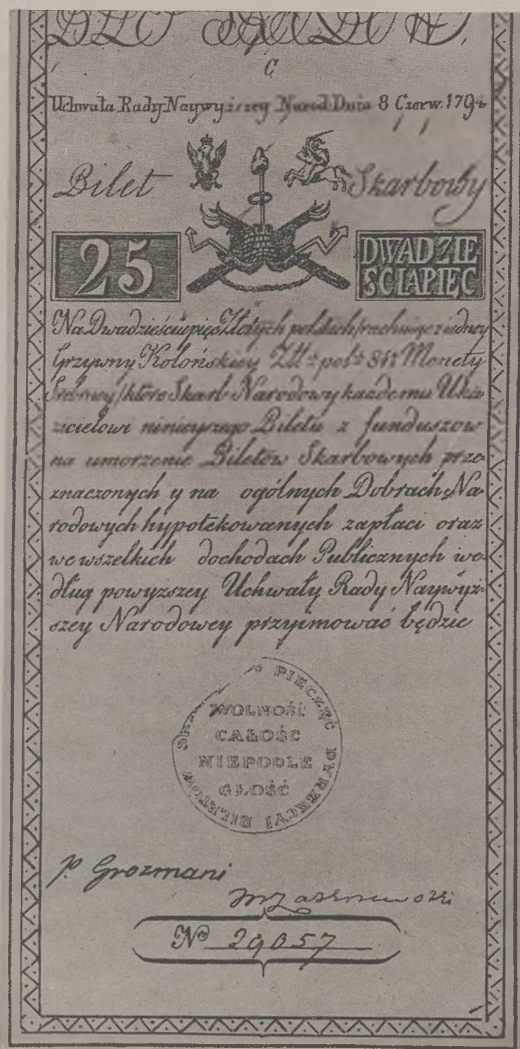 C
Uchwała Rady Naywyższey Narod: Dnia 8 Czerw. 1794
Bilet Skarbowy
25 DWADZIE
ŚCIAPIĘĆ
Na Dwadzieścia pięć Złotych polskich/rachuiąc z iedney
Grzywny Kolońskiey Złł: pol: Monety
Srebrney/które Skarb Narodowy każdemu Uka-
zicielowi ninieyszego Biletu z funduszow
na umorzenie Biletów Skarbowych prze-
znaczonych y na ogólnych Dobrach Na-
rodowych hypotekowanych zapłaci oraz
we wszelkich dochodach Publicznych we-
dług powyzszey Uchwały Rady Naywyż-
szey Narodowey przyimować będzie
PIECZĘĆ DYREKCYI BILETÓW
WOLNOŚĆ
CAŁOŚĆ
NIEPODLE
GŁOŚĆ
P. Grozmani
No 29057